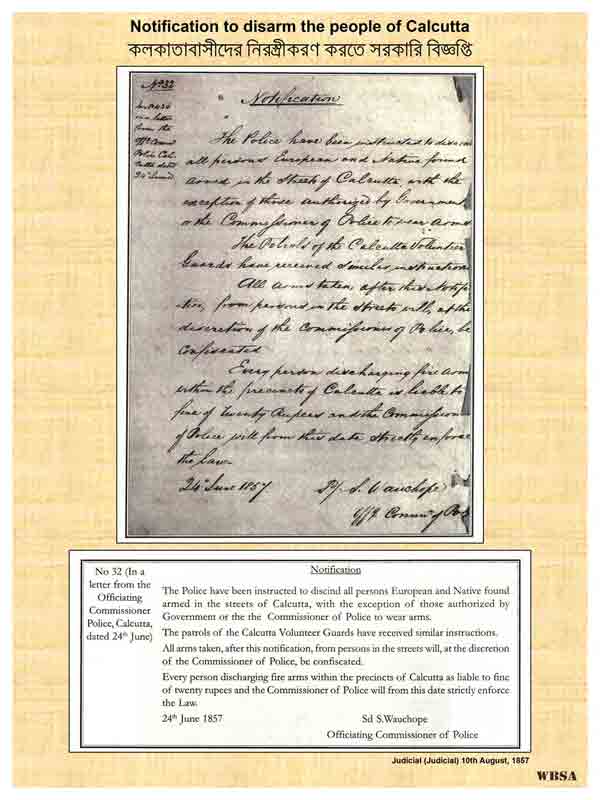 Notification to disarm the people of Calcutta
কলকাতাবাসীদের নিরস্ত্রীকরণ করতে সরকারি বিজ্ঞপ্তি
No 32
in a letter
from the
Offg Commr
Police Cal-
cutta dated
24th June)
Notification
The Police have been instructed to disarm
all persons European and Native found
armed in the Streets of Calcutta, with the
exception of those authorized by Government
or the Commissioner of Police to wear Arms
The Patrols of the Calcutta Volunteer
Guards have received similar instructions
All Arms taken, after this Notifi-
-tion, from persons in the Streets will, at the
discretion of the Commissioner of Police, be
Confiscated
Every person discharging fire Arms
within the precincts of Calcutta is liable to
fine of Twenty Rupees and the Commissioner
of Police will from this date strictly enforce
the law.
24th June 1857 Sd/ S. Wauchope
Offg Commr of Pol
No 32 (In a
letter from the
Officiating
Commissioner
Police, Calcutta,
dated 24th June)
Notification
The Police have been instructed to discind all persons European and Native found
armed in the streets of Calcutta, with the exception of those authorized by
Government or the the Commissioner of Police to wear arms.
The patrols of the Calcutta Volunteer Guards have received similar instructions.
All arms taken, after this notification, from persons in the streets will, at the discretion
of the Commissioner of Police, be confiscated.
Every person discharging fire arms within the precincts of Calcutta as liable to fine
of twenty rupees and the Commissioner of Police will from this date strictly enforce
the Law.
24th June 1857 Sd S.Wauchope
Officiating Commissioner of Police
Judicial (Judicial) 10th August, 1857
WBSA